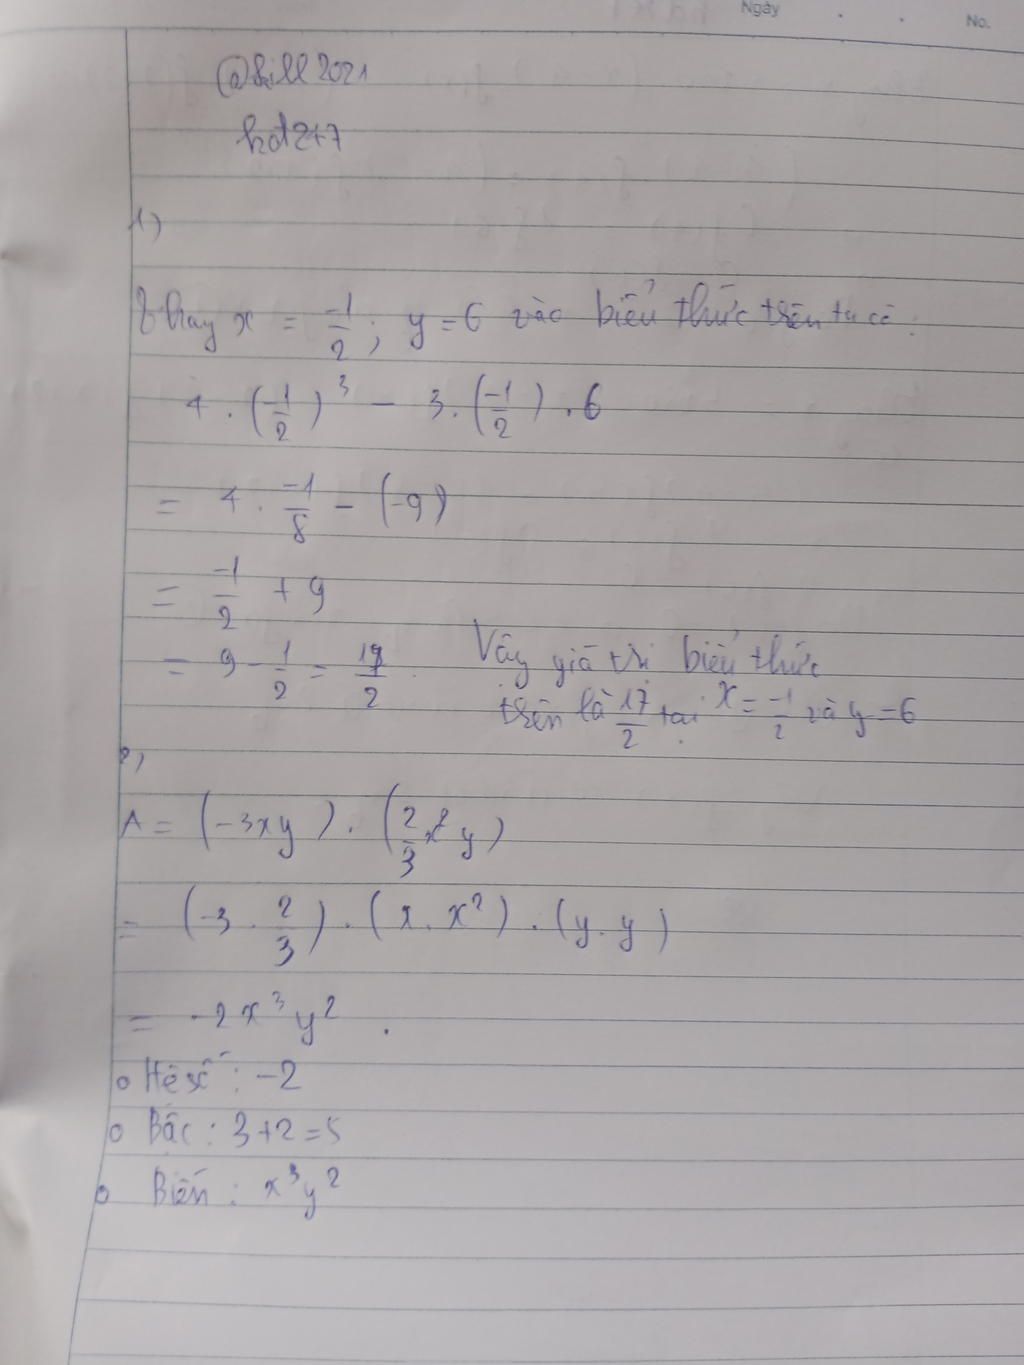 Ngày . . No.
@kill2021
hdt2+7
1)
Thay x = -1/2 ; y = 6 vào biểu thức trên ta có:
4 . (-1/2)³ - 3 . (-1/2) . 6
= 4 . -1/8 - (-9)
= -1/2 + 9
= 9 - 1/2 = 17/2 .
Vậy giá trị biểu thức
trên là 17/2 tại x = -1/2 và y = 6
2)
A = (-3xy) . (2/3 x²y)
= (-3 . 2/3) . (x . x²) . (y . y)
= -2x³y² .
Hệ số : -2
Bậc : 3+2=5
Biến : x³y²